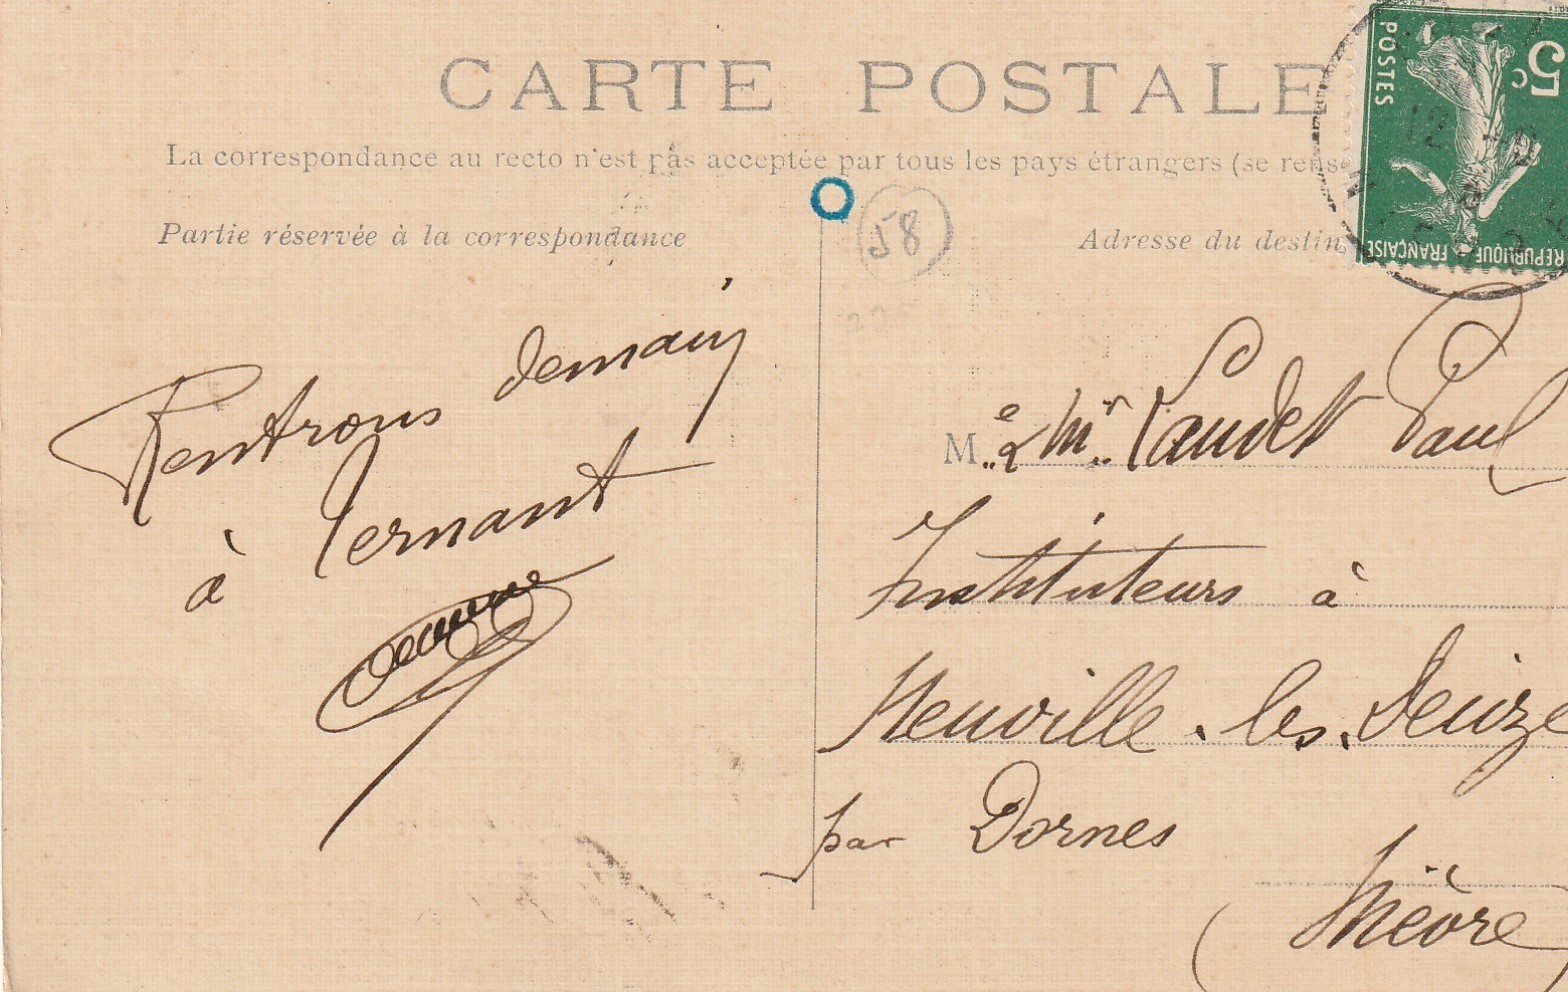 CARTE POSTALE
La correspondance au recto n'est pas acceptée par tous les pays étrangers (se rense
Partie réservée à la correspondance
Adresse du destin
5c
POSTES
REPUBLIQUE FRANÇAISE
12
J8
Rentrons demain
à Lernant
M e & Mr Laudet Paul
Instituteurs à
Neuville-les-Deuize
par Dornes
Nièvre